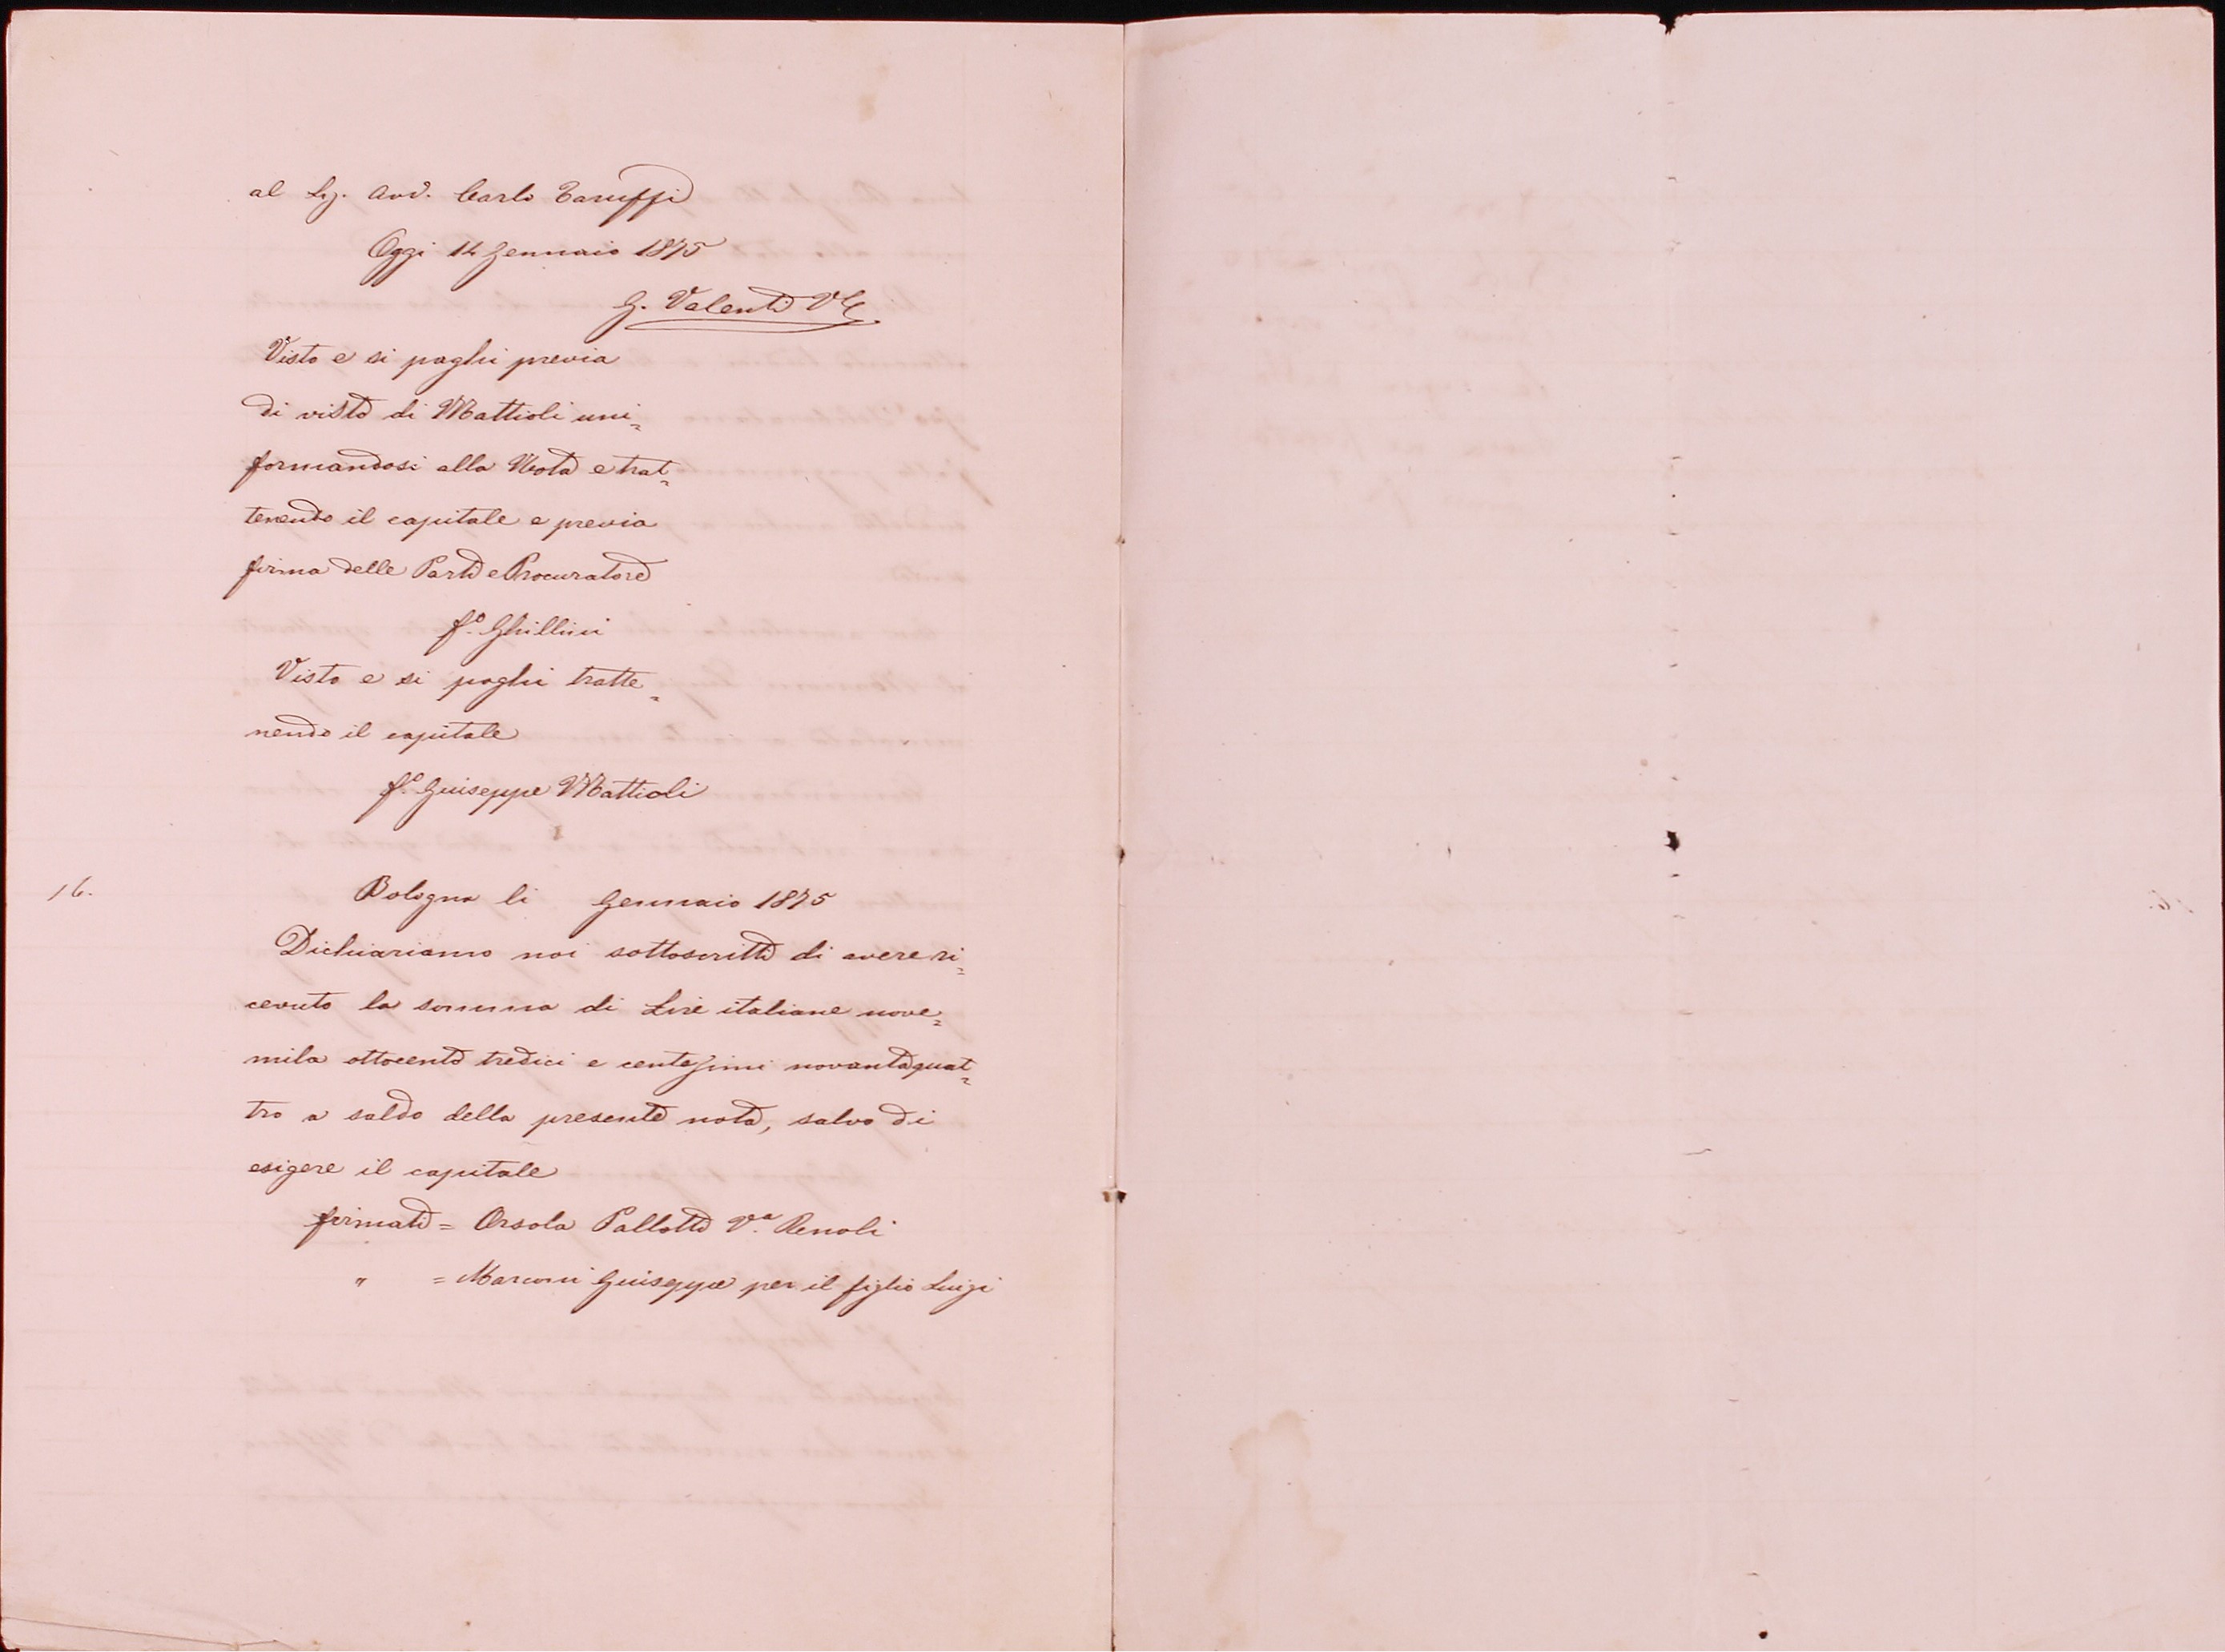 al Sig. Avv. Carlo Taruffi
Oggi 12 Gennaio 1875
G. Valenti VC
Visto e si paghi previa
di visto di Mattioli uni=
formandosi alla Nota e trat=
tenendo il capitale e previa
firma delle Parti e Procuratore
f.º Ghillini
Visto e si paghi tratte=
nendo il capitale
f.º Giuseppe Mattioli
16.
Bologna li Gennaio 1875
Dichiariamo noi sottoscritti di avere ri=
cevuto la somma di Lire italiane nove=
mila ottocento tredici e centesimi novantaquat=
tro a saldo della presente nota, salvo di
esigere il capitale
firmati = Orsola Pallotti V.a Renoli
" = Marconi Giuseppe per il figlio Luigi